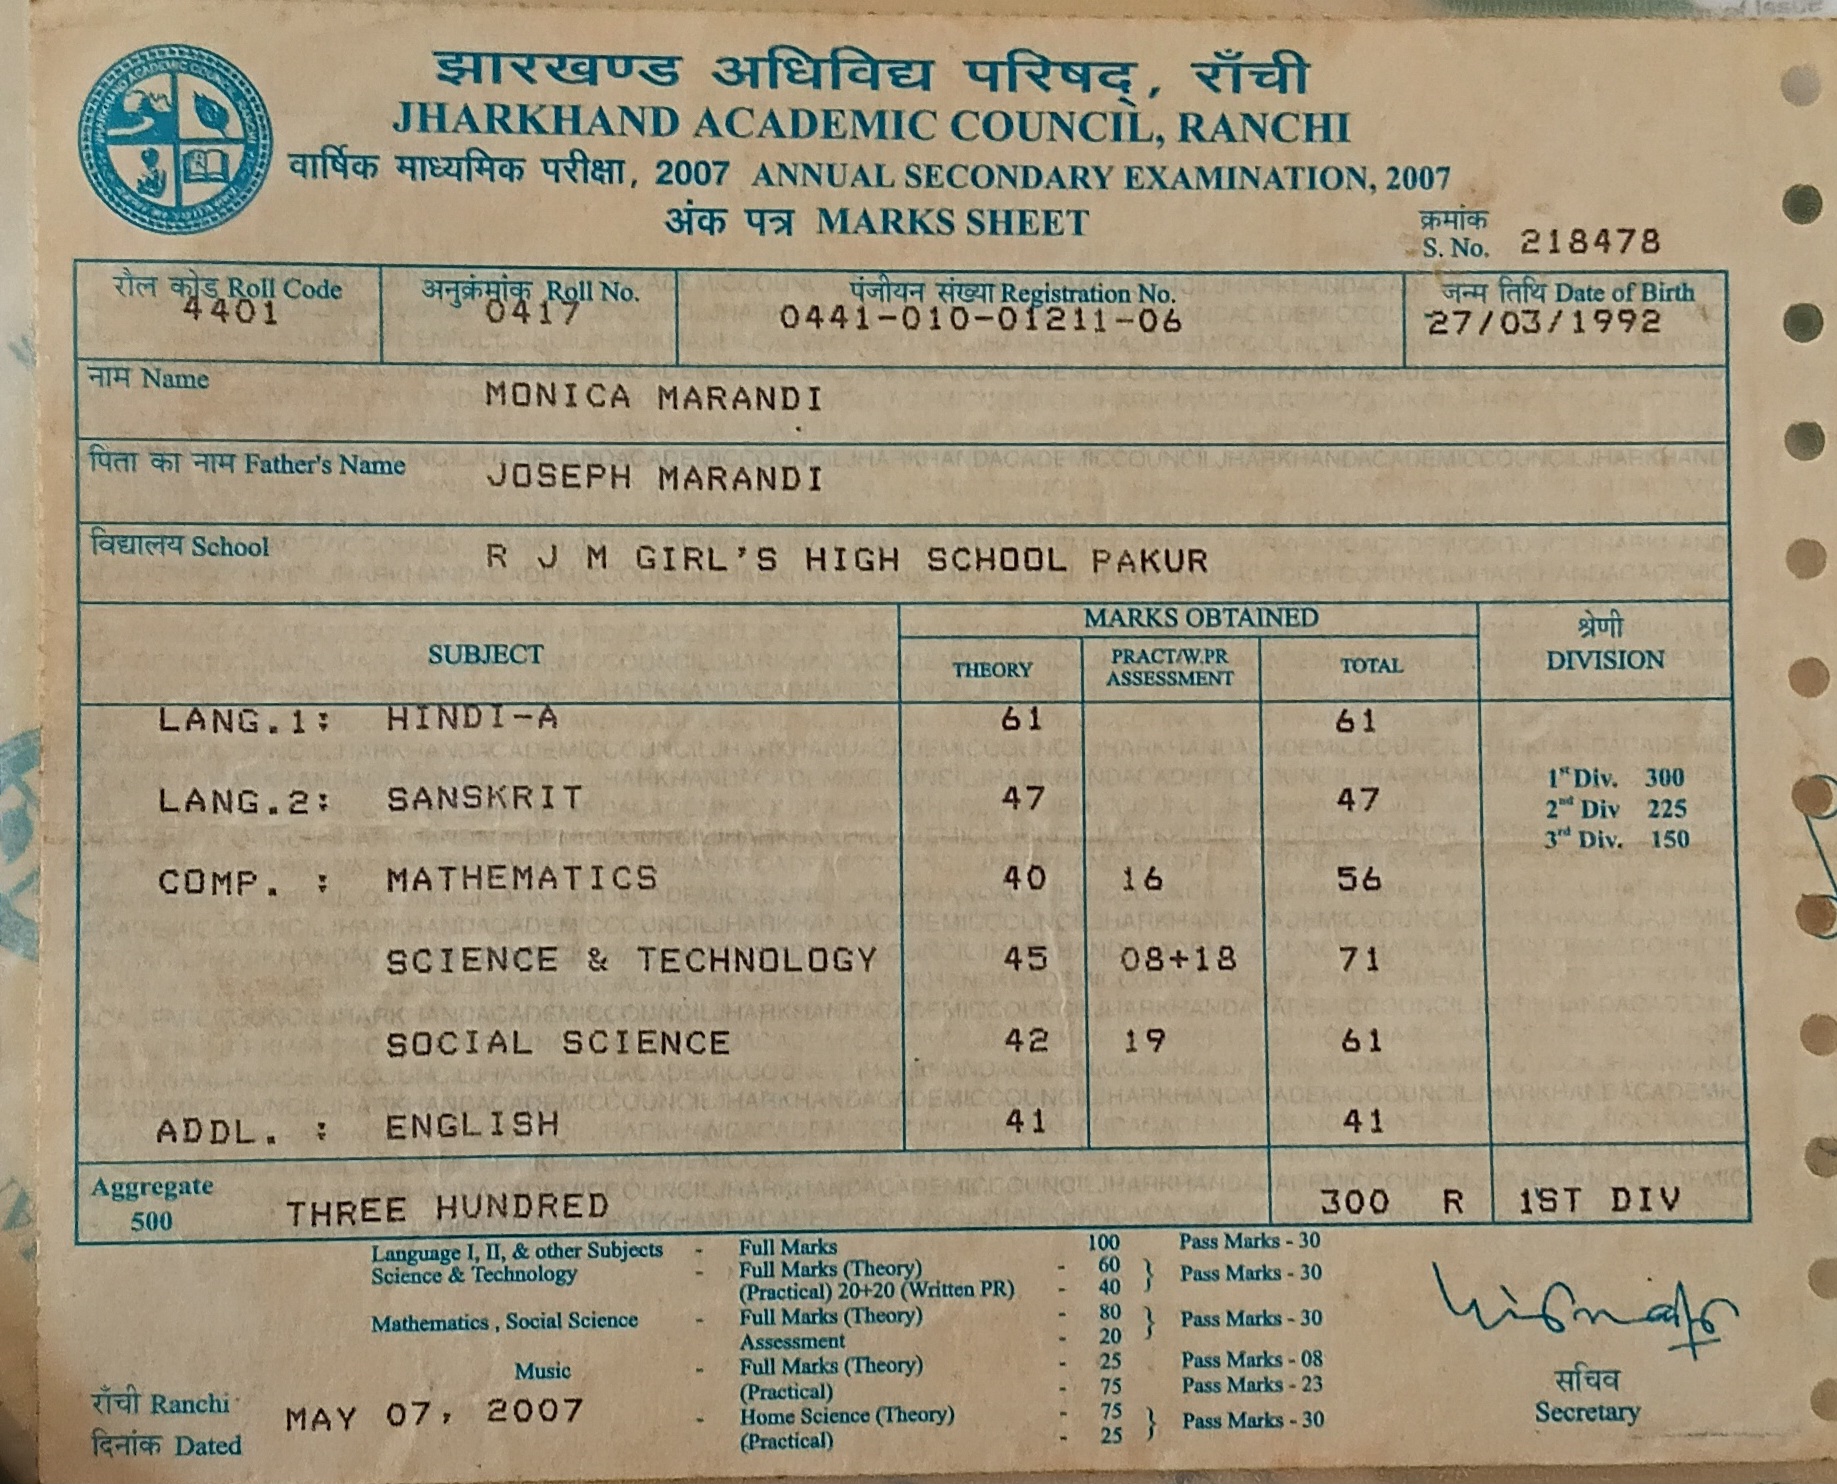 झारखण्ड अधिविद्य परिषद्, राँची
JHARKHAND ACADEMIC COUNCIL, RANCHI
वार्षिक माध्यमिक परीक्षा, 2007 ANNUAL SECONDARY EXAMINATION, 2007
अंक पत्र MARKS SHEET
क्रमांक
S. No. 218478
रौल कोड Roll Code अनुक्रंमांक Roll No. पंजीयन संख्या Registration No. जन्म तिथि Date of Birth
4401 0417 0441-010-01211-06 27/03/1992
नाम Name MONICA MARANDI
पिता का नाम Father's Name JOSEPH MARANDI
विद्यालय School R J M GIRL'S HIGH SCHOOL PAKUR
SUBJECT MARKS OBTAINED श्रेणी DIVISION
THEORY PRACT/W.PR ASSESSMENT TOTAL
LANG.1: HINDI-A 61 61
1st Div. 300
LANG.2: SANSKRIT 47 47
2nd Div 225
3rd Div. 150
COMP. : MATHEMATICS 40 16 56
SCIENCE & TECHNOLOGY 45 08+18 71
SOCIAL SCIENCE 42 19 61
ADDL. : ENGLISH 41 41
Aggregate 500 THREE HUNDRED 300 R 1ST DIV
Language I, II, & other Subjects - Full Marks 100 Pass Marks - 30
Science & Technology - Full Marks (Theory) - 60 } Pass Marks - 30
(Practical) 20+20 (Written PR) - 40
Mathematics , Social Science - Full Marks (Theory) - 80 } Pass Marks - 30
Assessment - 20
Music - Full Marks (Theory) - 25 Pass Marks - 08
(Practical) - 75 Pass Marks - 23
- Home Science (Theory) - 75 } Pass Marks - 30
(Practical) - 25
राँची Ranchi
MAY 07, 2007
दिनांक Dated
सचिव
Secretary